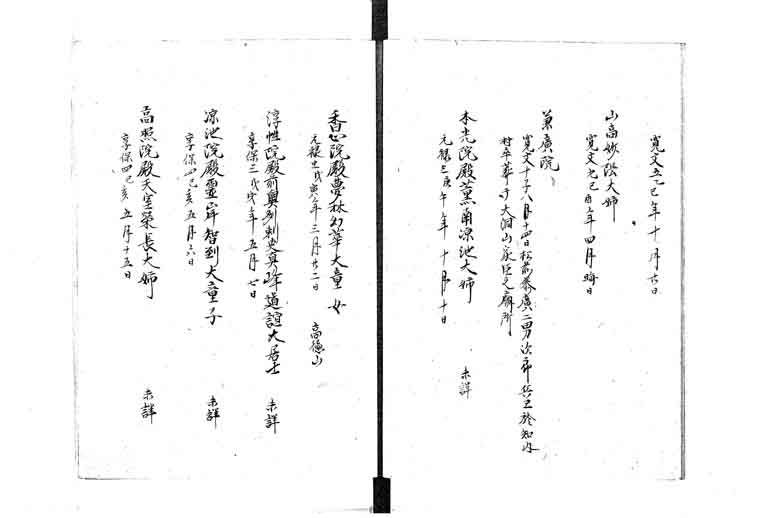 寛文五乙巳年十月廿日
山高妙陰大姉
寛文九己酉年四月晦日
兼廣院
寛文十二子八月十四日松前泰廣二男次郎兵衛於知内
村卒葬于大洞山家臣之廟所
本光院殿薫南凉池大姉 未詳
元禄三庚午年十月十日
香心院殿夢林幻華大童女 高徳山
元禄十一戊寅年三月廿二日
淳性院殿前奥列刺史真峰道誼大居士 未詳
享保三戊戌年五月七日
凉池院殿靈岸智到大童子 未詳
享保四己亥五月六日
高照院殿天室榮長大姉 未詳
享保四己亥五月十五日